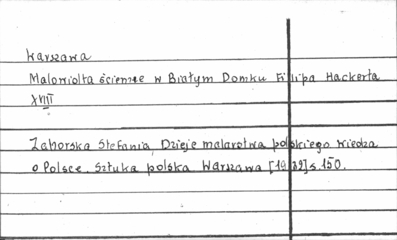 Warszawa
Malowidła ścienne w Białym Domku Filipa Hackerta
XVIII
Zahorska Stefania, Dzieje malarstwa polskiego Wiedza
o Polsce. Sztuka polska Warszawa [1932] s. 150.